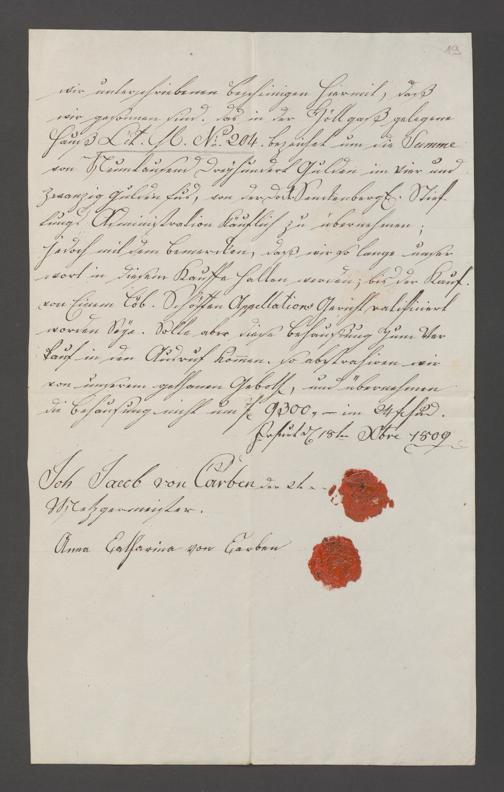 19
wir unterschriebenen bescheinigen hiermit, daß
wir gesonnen sind, das in der Töllgaß gelegene
Hauß Lit. M. No. 204. bezeichet um die Summe
von Neuntausend Dreyhundert Gulden im vier und
zwanzig Gulden Fus, von der Senckenbergl. Stif-
tungs Administration käuflich zu übernehmen;
jedoch mit dem bemercken, daß wir so lange unser
wort in diesem Kauffe halten werden, bis der Kauf
von Einem Löb. Schöffen Appellations Gericht ratificiert
worden Seye. Solte aber diese behaußung zum Ver
kauf in den Ausruf kommen. so abstrahiren wir
von unserem gethanen Geboth, und übernehmen
die behausung nicht um f 9300,— in 24 f
18ten Xbre 1809
Joh Jacob von Carben der
Metzgermeister.
Anna Catharina von Carben